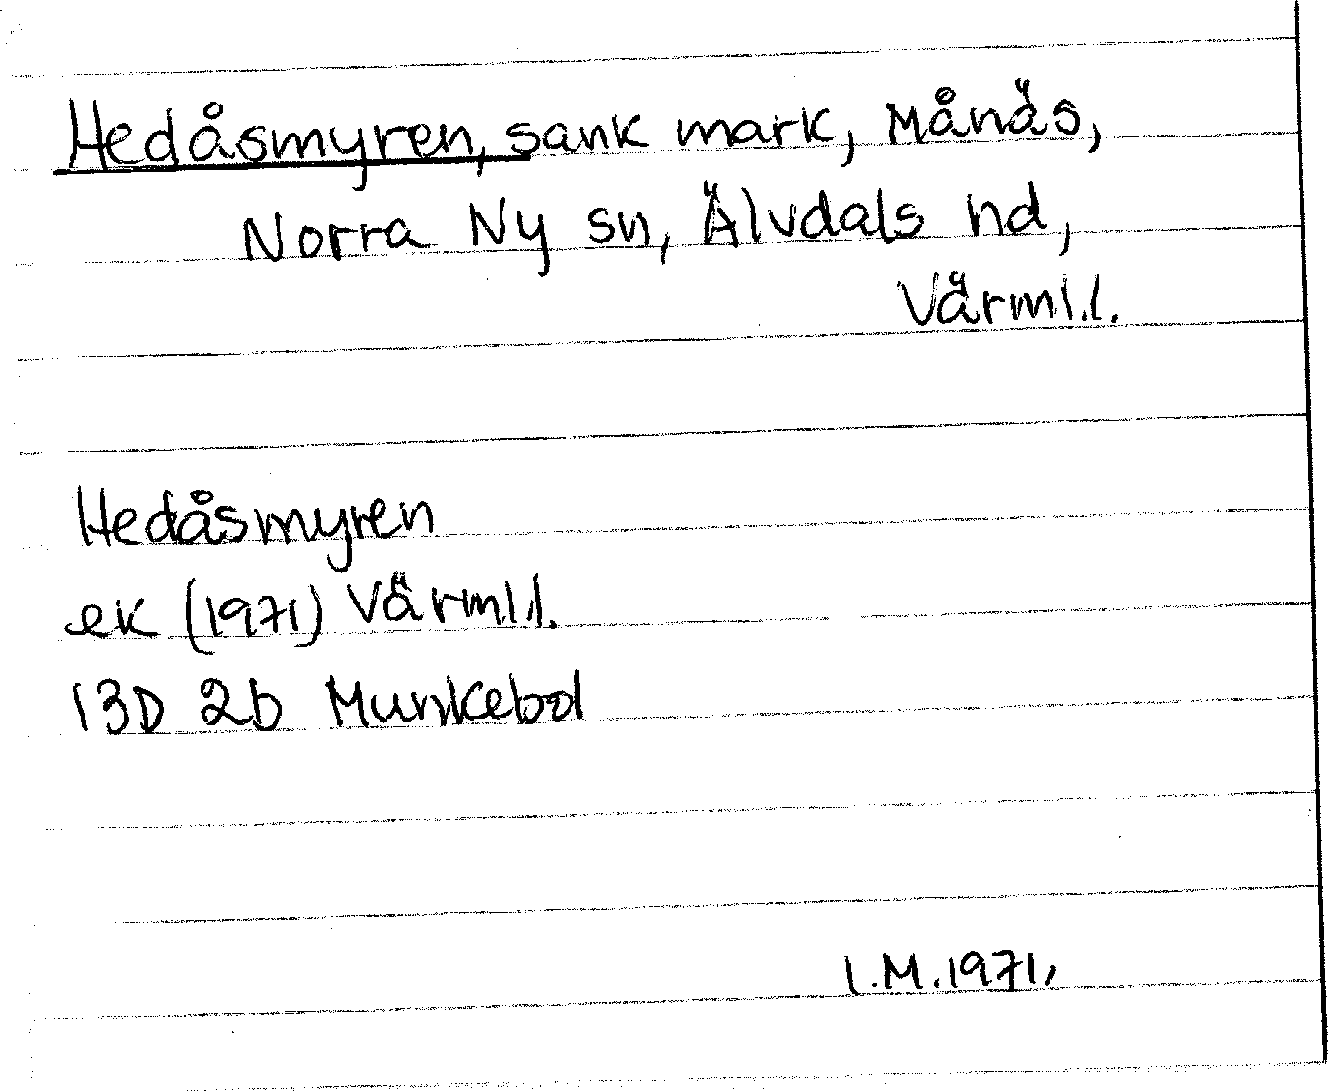 Hedåsmyren, sank mark, Månäs,
Norra Ny sn, Älvdals hd,
Värml.l.
Hedåsmyren
ek (1971) Värml.l.
13D 2b Munkebol
I.M.1971,